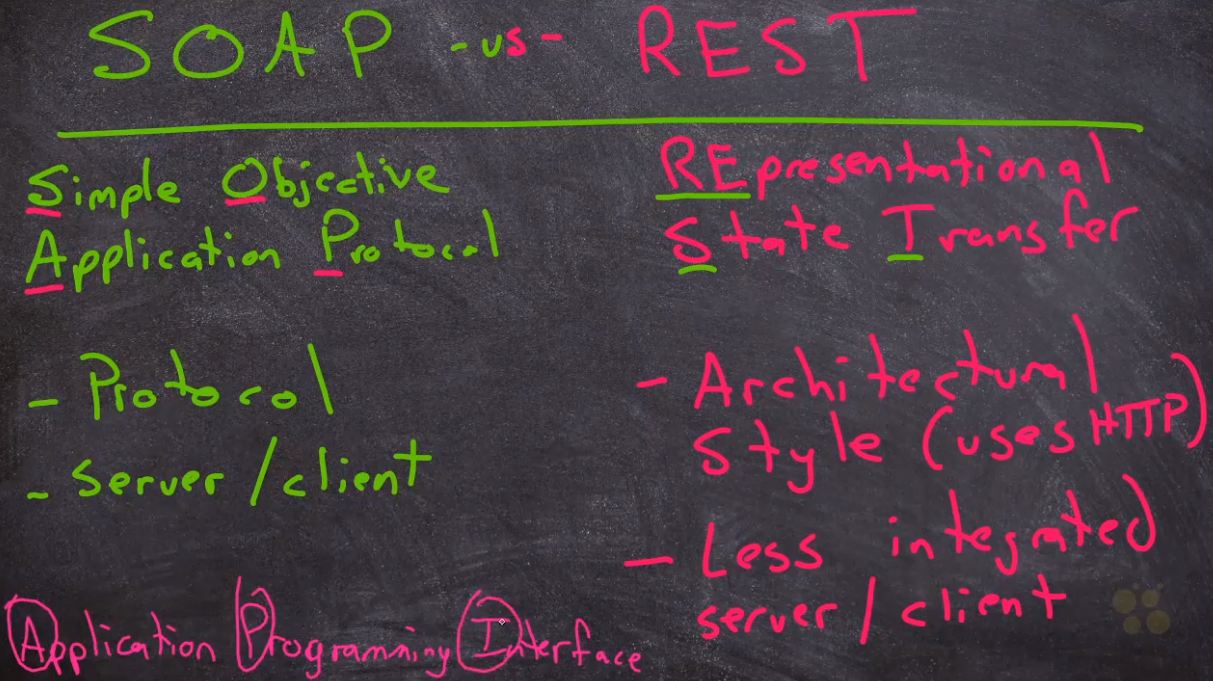 SOAP -vs- REST
Simple Objective
Application Protocol
- Protocol
- server/client
REpresentational
State Transfer
- Architectural
Style (uses HTTP)
- Less integrated
server/client
Application Programming Interface